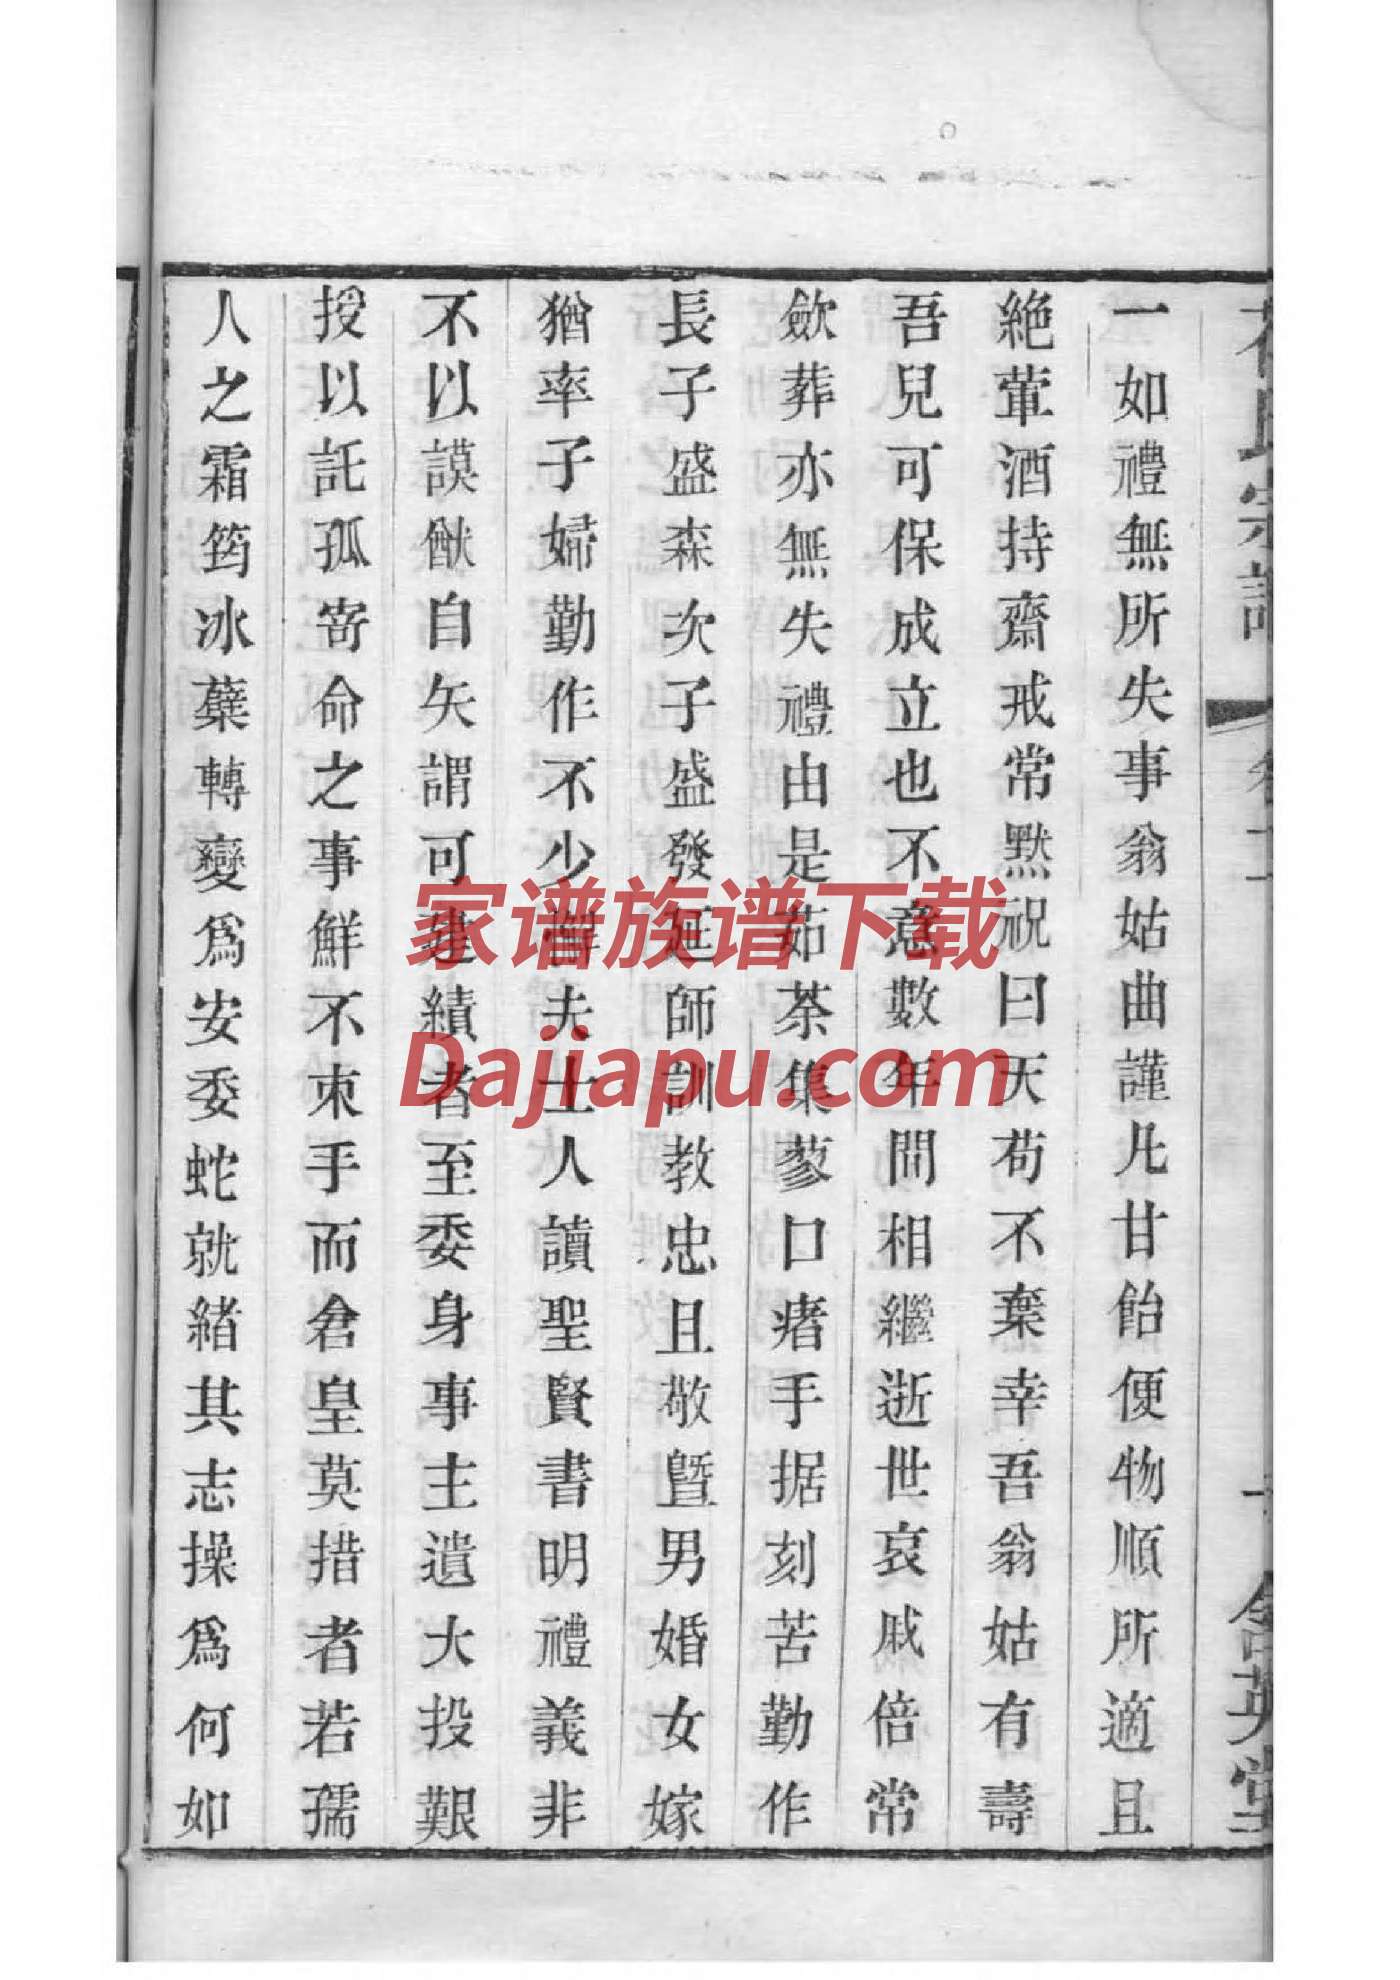 一如禮無所失事翁姑曲謹凡甘飴便物順所適且
絶葷酒持齋戒常默祝曰天苟不棄幸吾翁姑有壽
吾兒可保成立也不意數年間相繼逝世哀戚倍常
歛葬亦無失禮由是茹荼集蓼口瘏手据刻苦勤作
長子盛森次子盛發延師訓教忠且敬曁男婚女嫁
猶率子婦勤作不少懈夫士人讀聖賢書明禮義非
不以謨猷自矢謂可建績者至委身事主遺大投艱
授以託孤寄命之事鮮不束手而倉皇莫措者若孺
人之霜筠冰蘗轉變爲安委蛇就緒其志操爲何如
氏宗譜
含英堂
家谱族谱下载
Dajiapu.com